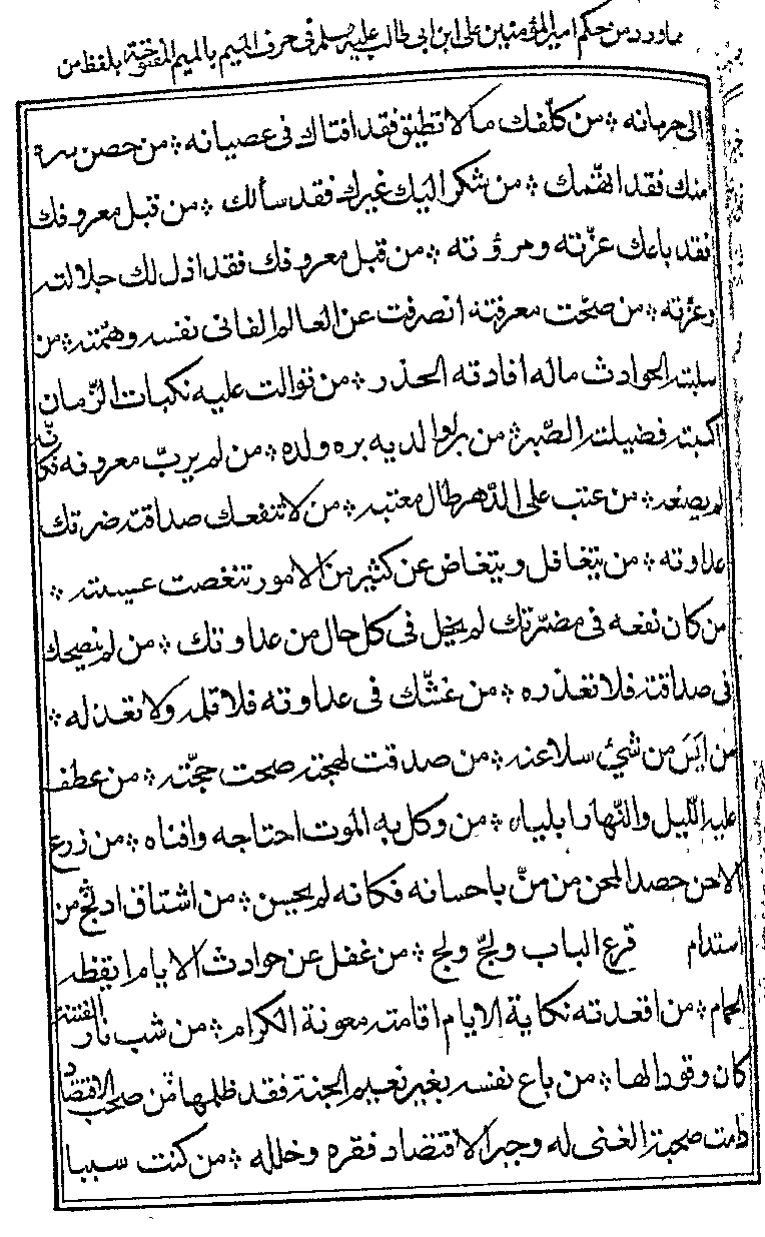 مما ورد من حكم امير المؤمنين على ابن ابى طالب عليه سلم فى حرف الميم بالميم المفتوحة بلفظ من
الى حرمانه ؞ من كلّفك ما لا تطيق فقد افتاك فى عصيانه ؞ من حصن سره
منك فقد اتّهمك ؞ من شكر اليك غيرك فقد سألك ؞ من قبل معروفك
فقد باعك عزّته ومروؤته ؞ من قبل معروفك فقد اذل لك جلالته
وعزّته ؞ من صحّت معرفته انصرفت عن العالم الفانى نفسه وهمّته ؞ من
سلبته الحوادث ماله افادته الحذر ؞ من توالت عليه نكبات الزّمان
اكسبته فضيلة الصّبر ؞ من بر والديه بره ولده ؞ من لم يربّ معروفه فكانّه
لم يصنعه ؞ من عتب على الدّهر طال معتبه ؞ من لا تنفعك صداقته ضرتك
عداوته ؞ من يتغافل ويتغاض عن كثير من الامور تنغصت عيشته ؞
من كان نفعه فى مضرّتك لم يخل فى كل حال من عداوتك ؞ من لم ينصحك
فى صداقته فلا تعذره ؞ من غشّك فى عداوته فلا تلمه ولا تعذله ؞
من ايَسَ من شيئ سلا عنه ؞ من صدقت لهجته صحت حجّته ؞ من عطف
عليه اللّيل والنّهار ابلياه ؞ من وكل به الموت احتاجه وافناه ؞ من زرع
الاحن حصد المحن من منّ باحسانه فكانه لم يحسن ؞ من اشتاق ادلج من
استدام قرع الباب ولجّ ولج ؞ من غفل عن حوادث الايام ايقظه
الحمام ؞ من اقعدته نكاية الايام اقامته معونة الكرام ؞ من شب نار الفتنة
كان وقودا لها ؞ من باع نفسه بغير نعيم الجنة فقد ظلمها من صحب الاقتصاد
دامت صحبة الغنى له وجبر الاقتصاد فقره وخلله ؞ من كنت سببا